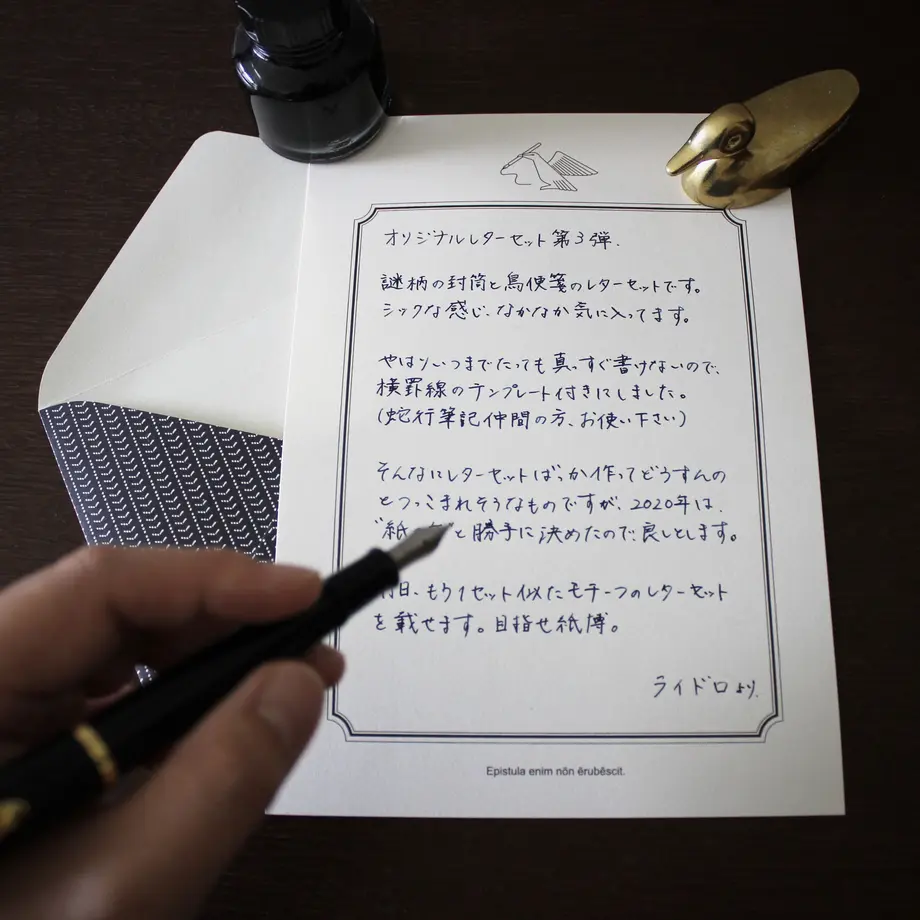 オリジナルレターセット第3弾.
謎柄の封筒と鳥便箋のレターセットです。
シックな感じ、なかなか気に入ってます。
やはりいつまでたっても真っすぐ書けないので、
横罫線のテンプレート付きにしました。
(蛇行筆記仲間の方、お使い下さい)
そんなにレターセットばっか作ってどうすんの
とつっこまれそうなものですが、2020年は、
"紙 "と勝手に決めたので良しとします。
日、もう1セット似たモチーフのレターセット
を載せます。目指せ紙博。
ライドロより.
Epistula enim nōn ērubēscit.